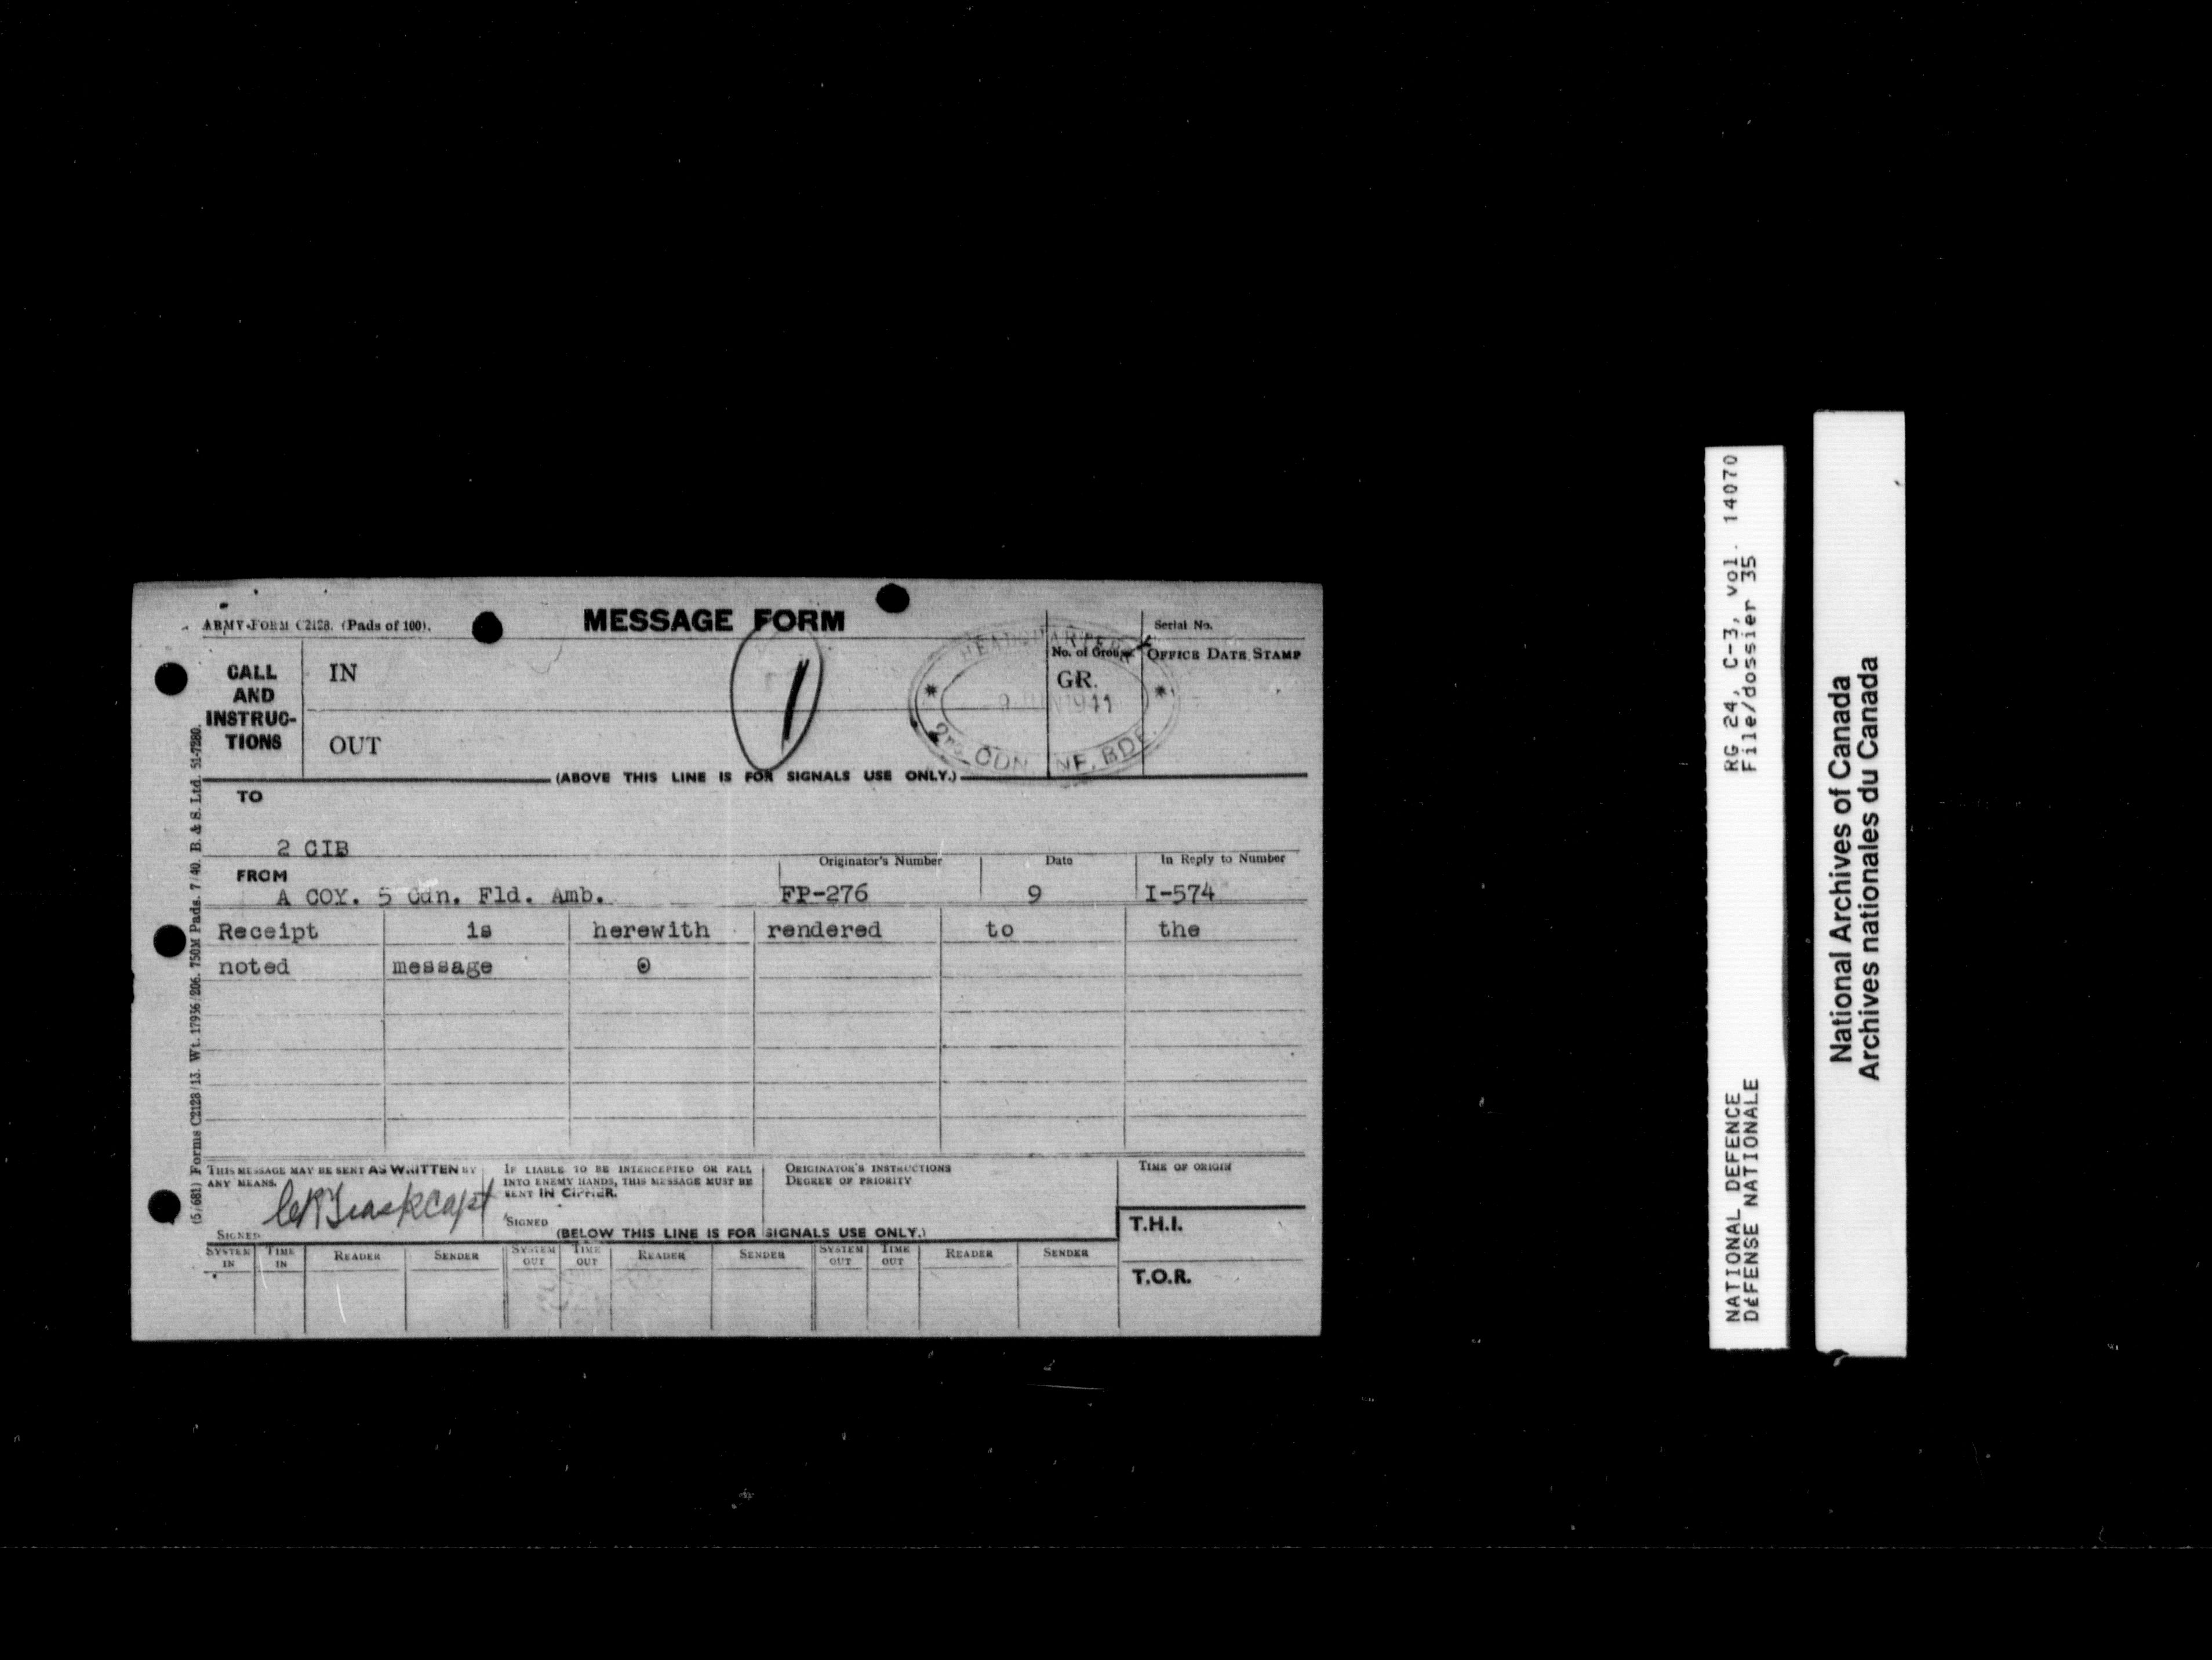 ARMY FORM C2128. (Pads of 100).
MESSAGE FORM
Serial No.
CALL AND INSTRUC-TIONS
IN
OUT
No. of Groups
GR.
OFFICE DATE STAMP
HEADQUARTERS
9 JUN 1941
2nd CDN. INF. BDE.
1
(ABOVE THIS LINE IS FOR SIGNALS USE ONLY.)
TO
2 CIB
FROM
A COY. 5 Cdn. Fld. Amb.
Originator's Number
FP-276
Date
9
In Reply to Number
I-574
Receipt is herewith rendered to the
noted message ⊙
THIS MESSAGE MAY BE SENT AS WRITTEN BY
ANY MEANS.
SIGNED
Capt
IF LIABLE TO BE INTERCEPTED OR FALL
INTO ENEMY HANDS, THIS MESSAGE MUST BE
SENT IN CIPHER.
SIGNED
ORIGINATOR'S INSTRUCTIONS
DEGREE OF PRIORITY
TIME OF ORIGIN
(BELOW THIS LINE IS FOR SIGNALS USE ONLY.)
T.H.I.
SYSTEM IN
TIME IN
READER
SENDER
SYSTEM OUT
TIME OUT
READER
SENDER
SYSTEM OUT
TIME OUT
READER
SENDER
T.O.R.
(5/681) Forms C2128/13. Wt. 17956/206. 750M Pads. 7/40. B. & S. Ltd. 51-7280.
NATIONAL DEFENCE RG 24, C-3, vol. 14070
DéFENSE NATIONALE File/dossier 35
National Archives of Canada
Archives nationales du Canada